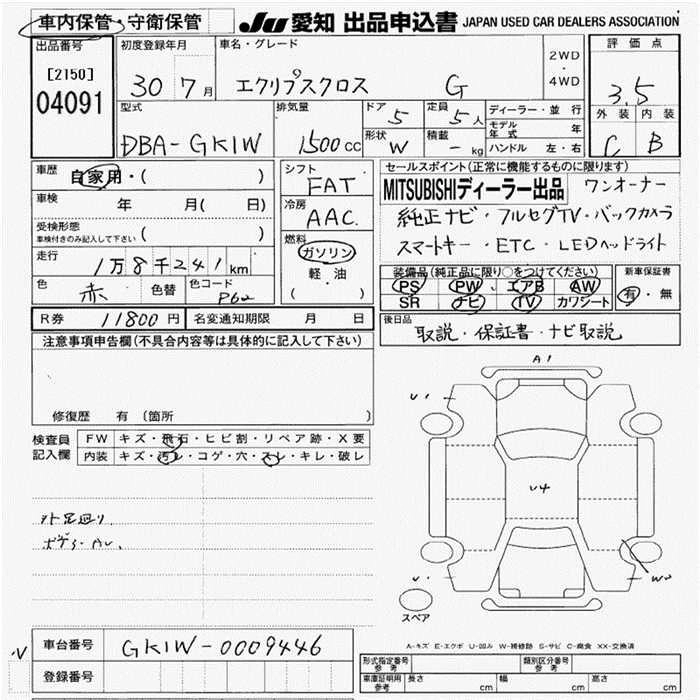 車内保管・守衛保管 JU 愛知 出品申込書 JAPAN USED CAR DEALERS ASSOCIATION
出品番号 初度登録年月 車名・グレード 2WD・4WD 評価点
[2150] 04091 30 7月 エクリプスクロス G 3.5
型式 排気量 ドア 5 定員 5人 ディーラー・並行 外装 内装
モデル年式 年
DBA-GK1W 1500cc 形状 W 積載 - kg ハンドル 左・右 C B
車歴 自家用・( ) シフト FAT セールスポイント(正常に機能するものに限ります)
車検 年 月( 日) 冷房 AAC MITSUBISHIディーラー出品 ワンオーナー
受検形態 車検付きのみ記入して下さい ( ) 純正ナビ・フルセグTV・バックカメラ
走行 1万8千241km 燃料 ガソリン 軽・油 ( ) スマートキー・ETC・LEDヘッドライト
色 赤 色替 色コード P62 装備品(純正品に限り○をつけてください) 新車保証書
PS PW エアB AW 有・無
SR ナビ TV カワシート
R券 11800円 名変通知期限 月 日 後日品
取説・保証書・ナビ取説
注意事項申告欄(不具合内容等は具体的に記入して下さい)
修復歴 有 (箇所 )
検査員記入欄 FW キズ・飛石・ヒビ割・リペア跡・X要
内装 キズ・汚レ・コゲ・穴・スレ・キレ・破レ
A1
U1
U4
W2
スペア
A-キズ E-エクボ U-凹み W-補修跡 S-サビ C-腐食 XX-交換済
車台番号 GK1W-0009446
登録番号
形式指定番号 参考 類別区分番号 参考
車庫証明用 参考 長さ cm 幅 cm 高さ cm